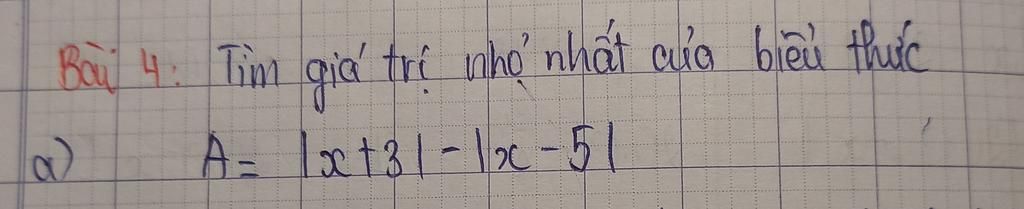 Bài 4: Tìm giá trị nhỏ nhất của biểu thức
a) A = |x + 3| - |x - 5|